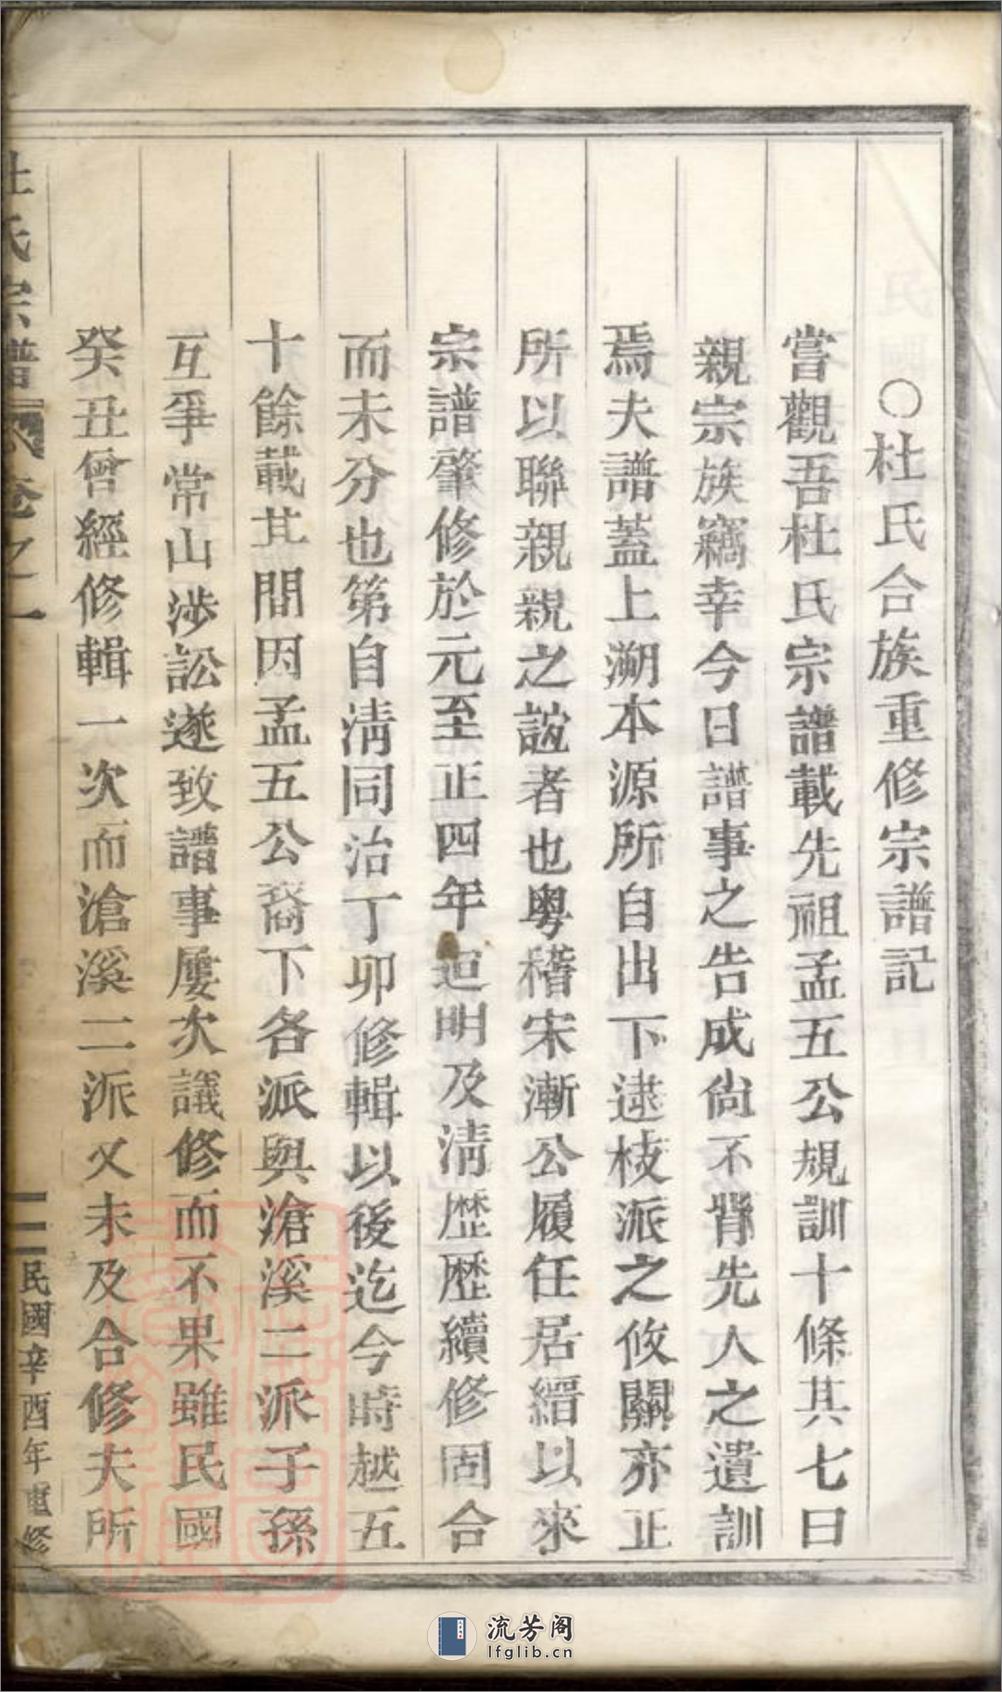 ○杜氏合族重修宗譜記
嘗觀吾杜氏宗譜載先祖孟五公規訓十條其七曰
親宗族竊幸今日譜事之告成尙不背先人之遺訓
焉夫譜蓋上溯本源所自出下逮枝派之攸關亦正
所以聯親親之誼者也粵稽宋漸公履任居縉以來
宗譜肇修於元至正四年迨明及淸歷歷續修固合
而未分也第自淸同治丁卯修輯以後迄今時越五
十餘載其間因孟五公裔下各派與滄溪二派子孫
互爭常山涉訟遂致譜事屢次議修而不果雖民國
癸丑曾經修輯一次而滄溪二派又未及合修夫所
杜氏宗譜 卷之一 一 民國辛酉年重修
流芳阁
lfglib.cn